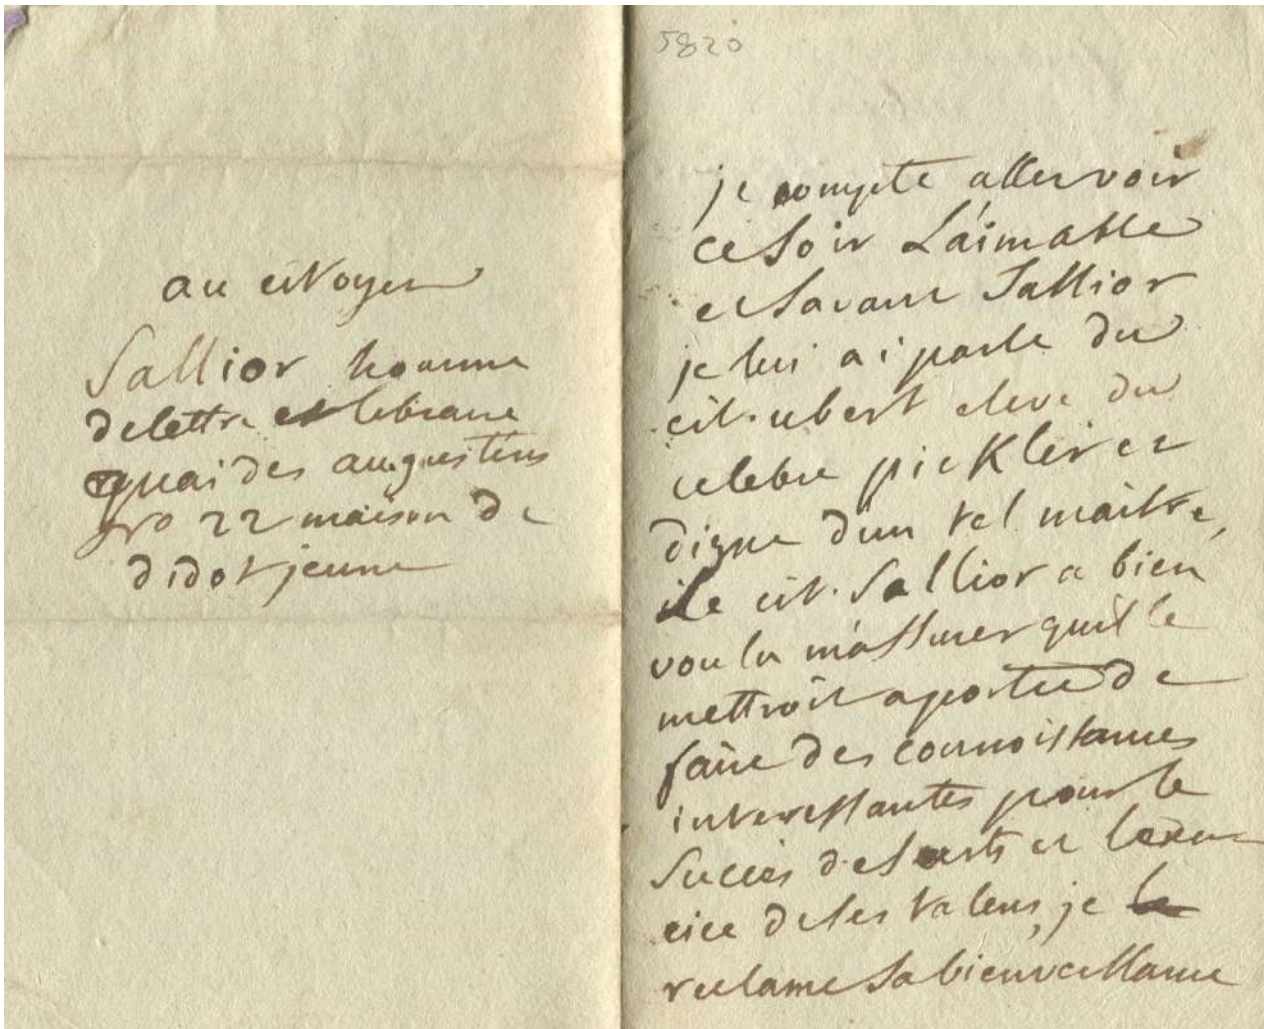 au citoyen
Sallior homme
de lettre et libraire
quai des augustins
nro 22 maison de
didot jeune
5820
je compte aller voir
ce soir L'aimable
et savant Sallior
je lui ai parlé du
cit. ubert eleve du
celebre pickler et
digne d'un tel maitre,
le cit. Sallior a bien
voulu m'assurer quil le
mettroit a portee de
faire des connoissances
interessantes pour le
succès de ses arts et lexer
cice de ses talens, je
reclame sa bienveillance